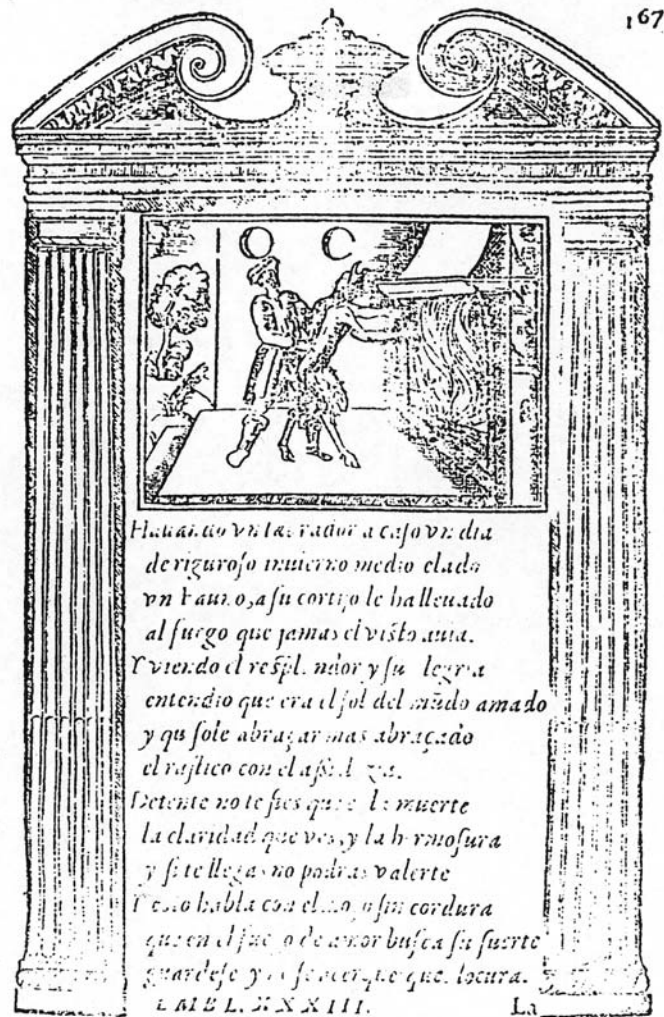 167
Hallando vn labrador a caſo vn dia
de riguroſo inuierno medio elado
vn Fauno, a ſu cortijo le ha lleuado
al fuego que jamas el viſto auia.
Y viendo el reſpl ndor y ſu legria
entendio que era el ſol del mũdo amado
y qu ſole abraçar mas abraçado
el ruſtico con el aſsi
Detente no te fies que la muerte
la claridad que ves, y la h rmoſura
y ſi te llegas no podras valerte
Y eſto habla con el moço ſin cordura
que en el fue o de amor buſca ſu ſuerte
guardeſe y no ſe acerque que locura.
EMBL. XXXIII.
La